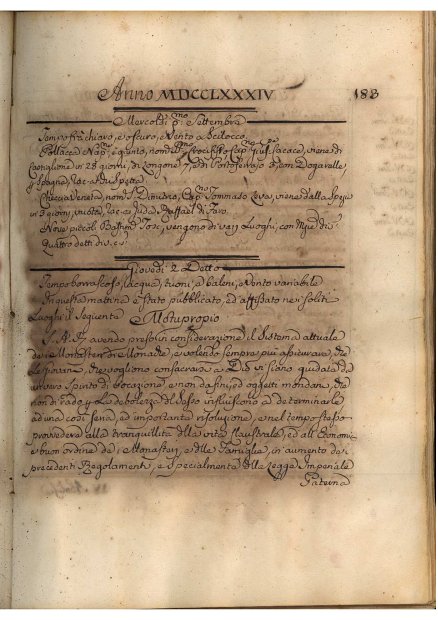 Anno MDCCLXXXIV 183
Mercoldì p.mo Settembre
Tempo frà chiaro, e oscuro, e Vento a Scilocco
Pollacca Nap.na e quinto, nom.ta il SS.mo Crocifisso Cap.no Gius.e viene di
in 28 giorni, di Longone 7, e di Portoferrajo 3, con Doga valle,
Spagne, &c. a
Checcia Veneta, nom.ta S. Cap.no Tommaso viene dalla
in 3 giorni, vuota, &c. a Juda, e Raffael di Faro
Nove piccoli Bastim.ti Tosc.i vengono di varj Luoghi, con Mr.ie div.e
Quattro detti div.e
Giovedì 2. Detto
Tempo borrascoso, acqua, tuoni, e baleni, e Vento variabile
In questa mattina è stato pubblicato, ed affissato nei soliti
Luoghi il seguente Motuproprio
S. A. R. avendo preso in considerazione il Sistema attuale
dei Monasteri di Monache, e volendo sempre più assicurare, che
le giovani, che vogliono consacrarsi a Dio vi siano guidate da
un vero Spirito di vocazione, e non da fini, ed oggetti mondani, che
non di rado p. la debolezza del Sesso influiscono a determinarle
ad una così seria, ed importante risoluzione, e nel tempo stesso
provvedere alla tranquillità della vita Claustrale, ed all'Economia
e buon ordine dei Monasterj, e delle Famiglie, in aumento dei
precedenti Regolamenti, e specialmente della Legge Imperiale
Paterna